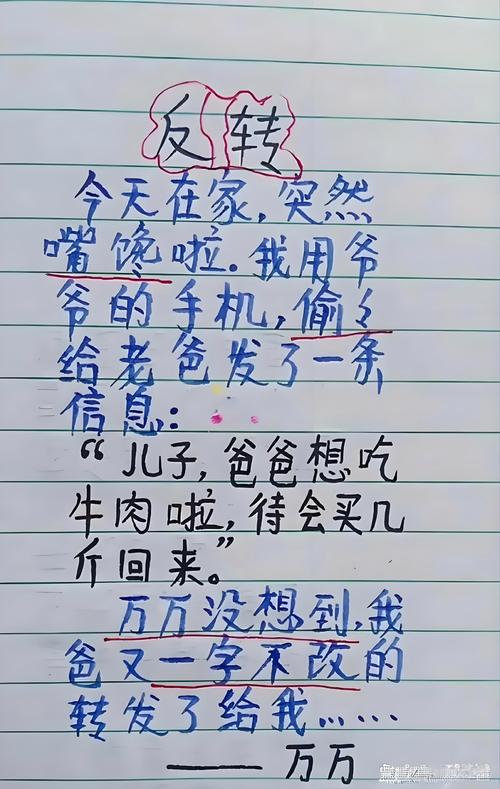 反转
今天在家,突然
嘴馋啦.我用爷
爷的手机,偷々
给老爸发了一条
信息:
“儿子,爸爸想吃
牛肉啦,待会买几
斤回来。”
万万没想到,我
爸又一字不改的
转发了给我……
——万万